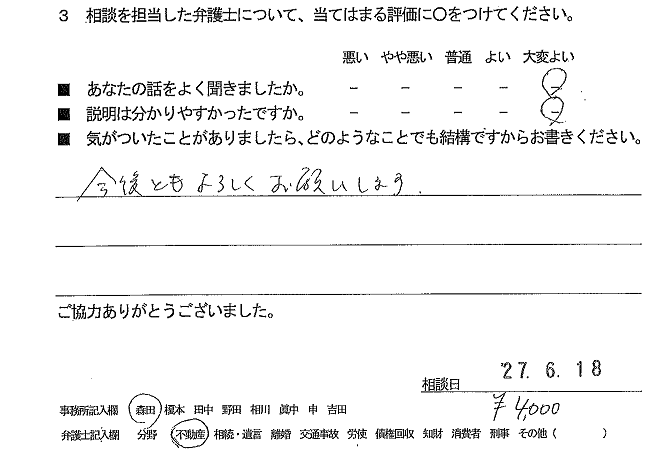 3 相談を担当した弁護士について、当てはまる評価に〇をつけてください。
悪い やや悪い 普通 よい 大変よい
■ あなたの話をよく聞きましたか。 － － － － －
■ 説明は分かりやすかったですか。 － － － － －
■ 気がついたことがありましたら、どのようなことでも結構ですからお書きください。
今後ともよろしくお願いします.
ご協力ありがとうございました。
相談日 27. 6. 18
¥4,000
事務所記入欄 森田 榎本 田中 野田 相川 眞中 申 吉田
弁護士記入欄 分野 不動産 相続・遺言 離婚 交通事故 労使 債権回収 知財 消費者 刑事 その他（ ）